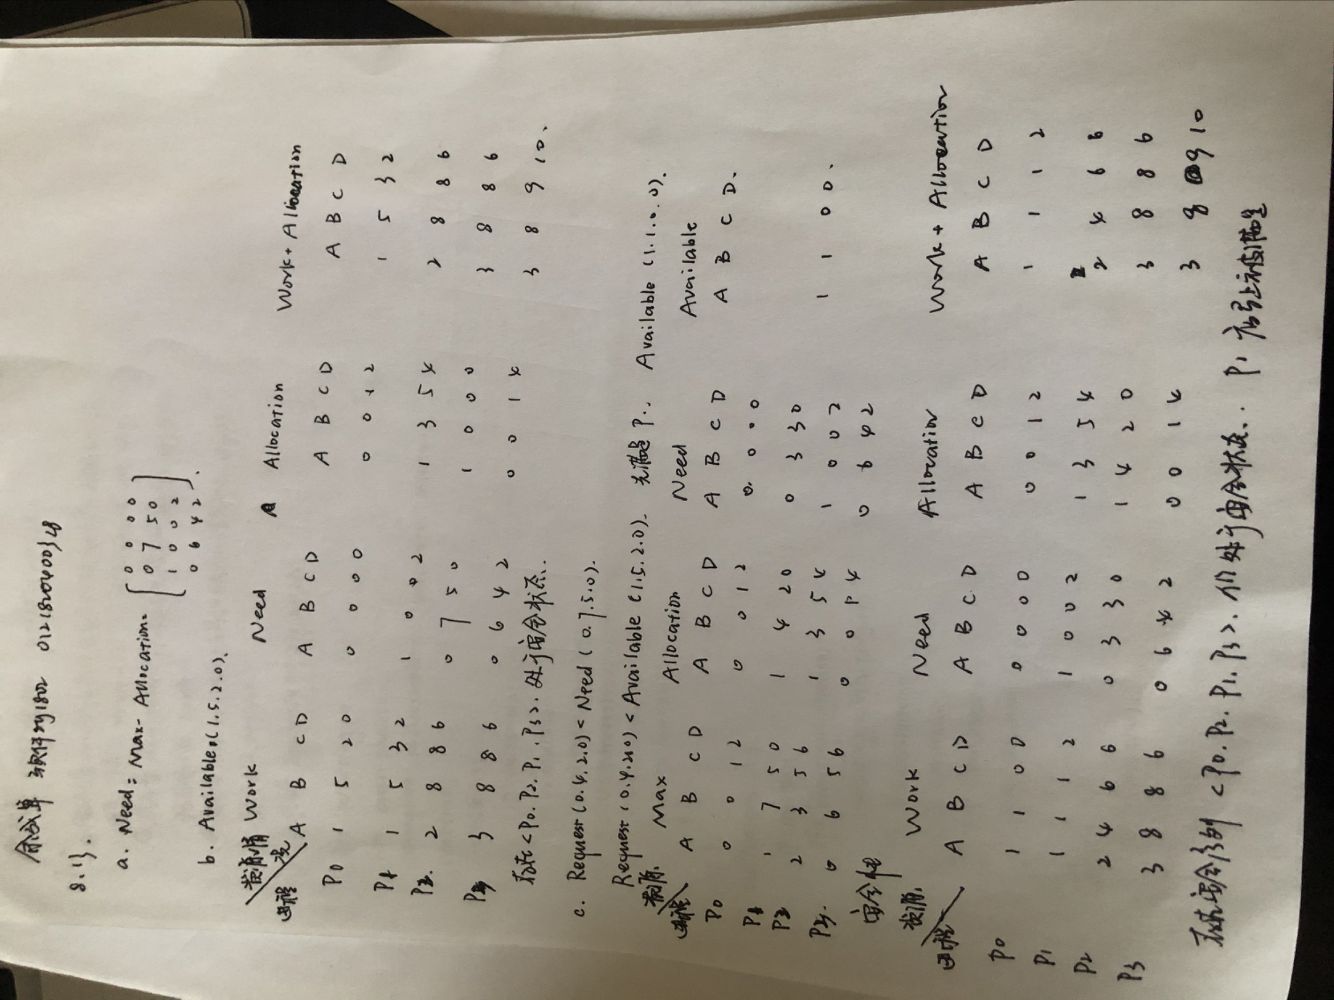 余成单 软件zy1802 0121820400328
8.13.
a. Need = Max - Allocation =
0 0 0 0
0 7 5 0
1 0 0 2
0 6 4 2
b. Available = (1.5.2.0).
资源情况 Work Need Allocation Work + Allocation
进程 A B C D A B C D A B C D A B C D
P0 1 5 2 0 0 0 0 0 0 0 1 2 1 5 3 2
P1 1 5 3 2 1 0 0 2 1 3 5 4 2 8 8 6
P2. 2 8 8 6 0 7 5 0 1 0 0 0 3 8 8 6
P3 3 8 8 6 0 6 4 2 0 0 1 4 3 8 9 10.
存在<P0. P2. P1. P3>. 处于安全状态.
c. Request (0.4.2.0) < Need (0.7.5.0).
Request (0.4.2.0) < Available (1.5.2.0). 先满足 P1. Available (1.1.0.0).
资源 Max Allocation Need Available
进程 A B C D A B C D A B C D A B C D.
P0 0 0 1 2 0 0 1 2 0. 0 0 0
P1 1 7 5 0 1 4 2 0 0 3 3 0
P2 2 3 5 6 1 3 5 4 1 0 0 2 1 1 0 0.
P3. 0 6 5 6 0 0 1 4 0 6 4 2
安全性
资源. Work Need Allocation Work + Allocation
进程 A B C D A B C D A B C D A B C D
P0 1 1 0 0 0 0 0 0 0 0 1 2 1 1 1 2
P1 1 1 1 2 1 0 0 2 1 3 5 4 2 4 6 6
P2 2 4 6 6 0 3 3 0 1 4 2 0 3 8 8 6
P3 3 8 8 6 0 6 4 2 0 0 1 4 3 8 9 10
存在安全序列 <P0. P2. P1. P3>. 仍处于安全状态. P1 应马上被满足